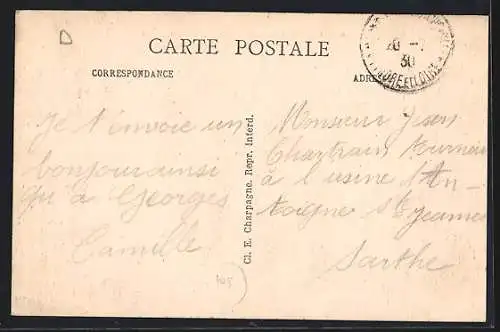 D
CARTE POSTALE
CORRESPONDANCE
ADRE
20 - 1
30
INDRE ET LOIRE
Je t'envoie un
bonjour ainsi
qu'à Georges
Camille
Cl. E. Charpagne. Repr. Interd.
Monsieur
Chartrain tourneur
à l'usine d'An-
toigne St Jeames
Sarthe
105